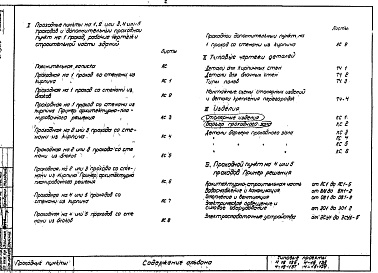 I Проходные пункты на 1, 2 или 3, 4 или 8
проход и дополнительный проходной
пункт на 1 проход, рабочие чертежи и
строительной части зданий
Листы
Пояснительная записка ЛС
Проходная на 1 проход со стенами из
кирпича ЛС 1
Проходная на 1 проход со стенами из
блоков ЛС 2
Проходная на 1 проход со стенами
из кирпича Пример архитектурно-пла-
нировочного решения ЛС 3
Проходная на 2 или 3 прохода со сте-
нами из кирпича ЛС 4
Проходная на 2 или 3 прохода со сте-
нами из блоков ЛС 5
Проходная на 2 или 3 прохода со сте-
нами из кирпича Пример архитектурно-
планировочного решения ЛС 6
Проходная на 4 или 8 проходов со
стенами из кирпича ЛС 7
Проходная на 4 или 8 проходов со сте-
нами из блоков ЛС 8
Листы
Проходной дополнительный пункт на
1 проход со стенами из кирпича ЛС 9
II Типовые чертежи деталей
Детали для кирпичных стен ТЧ 1
Детали для блочных стен ТЧ 2
Типы полов ТЧ 3
Монтажные схемы столярных изделий
и детали крепления перегородок ТЧ-4
III Изделия
Столярные изделия ЛС 1
Барьер проходного зала ЛС 2
Детали барьера проходного зала ЛС 3
ЛС 4
ЛС 5
ЛС 6
Б. Проходной пункт на 4 или 8
проходов Пример решения
Архитектурно-строительная часть
Водоснабжение и канализация
Отопление и вентиляция
Электрическое освещение и
силовое оборудование
Электрослаботочные устройства
Проходные пункты
Содержание альбома
Типовые проекты